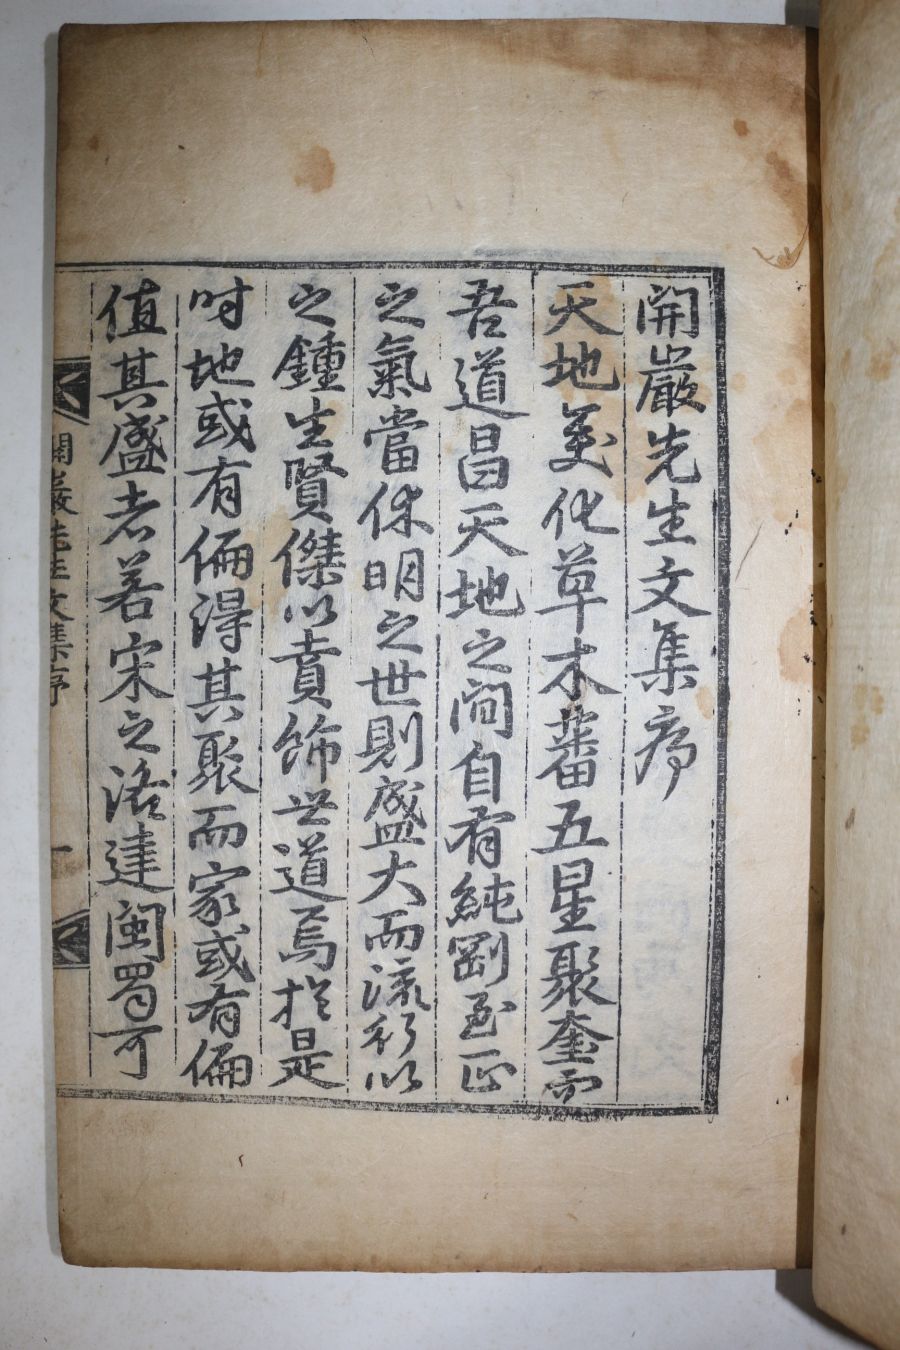 開巖先生文集序
天地美化草木蕃五星聚奎而
吾道昌天地之間自有純剛至正
之氣當休明之世則盛大而流行以
之鍾生賢傑以賁飾世道焉於是
时地或有偏得其聚而家或有偏
值其盛者若宋之洛建閩蜀可
開巖先生文集序
一